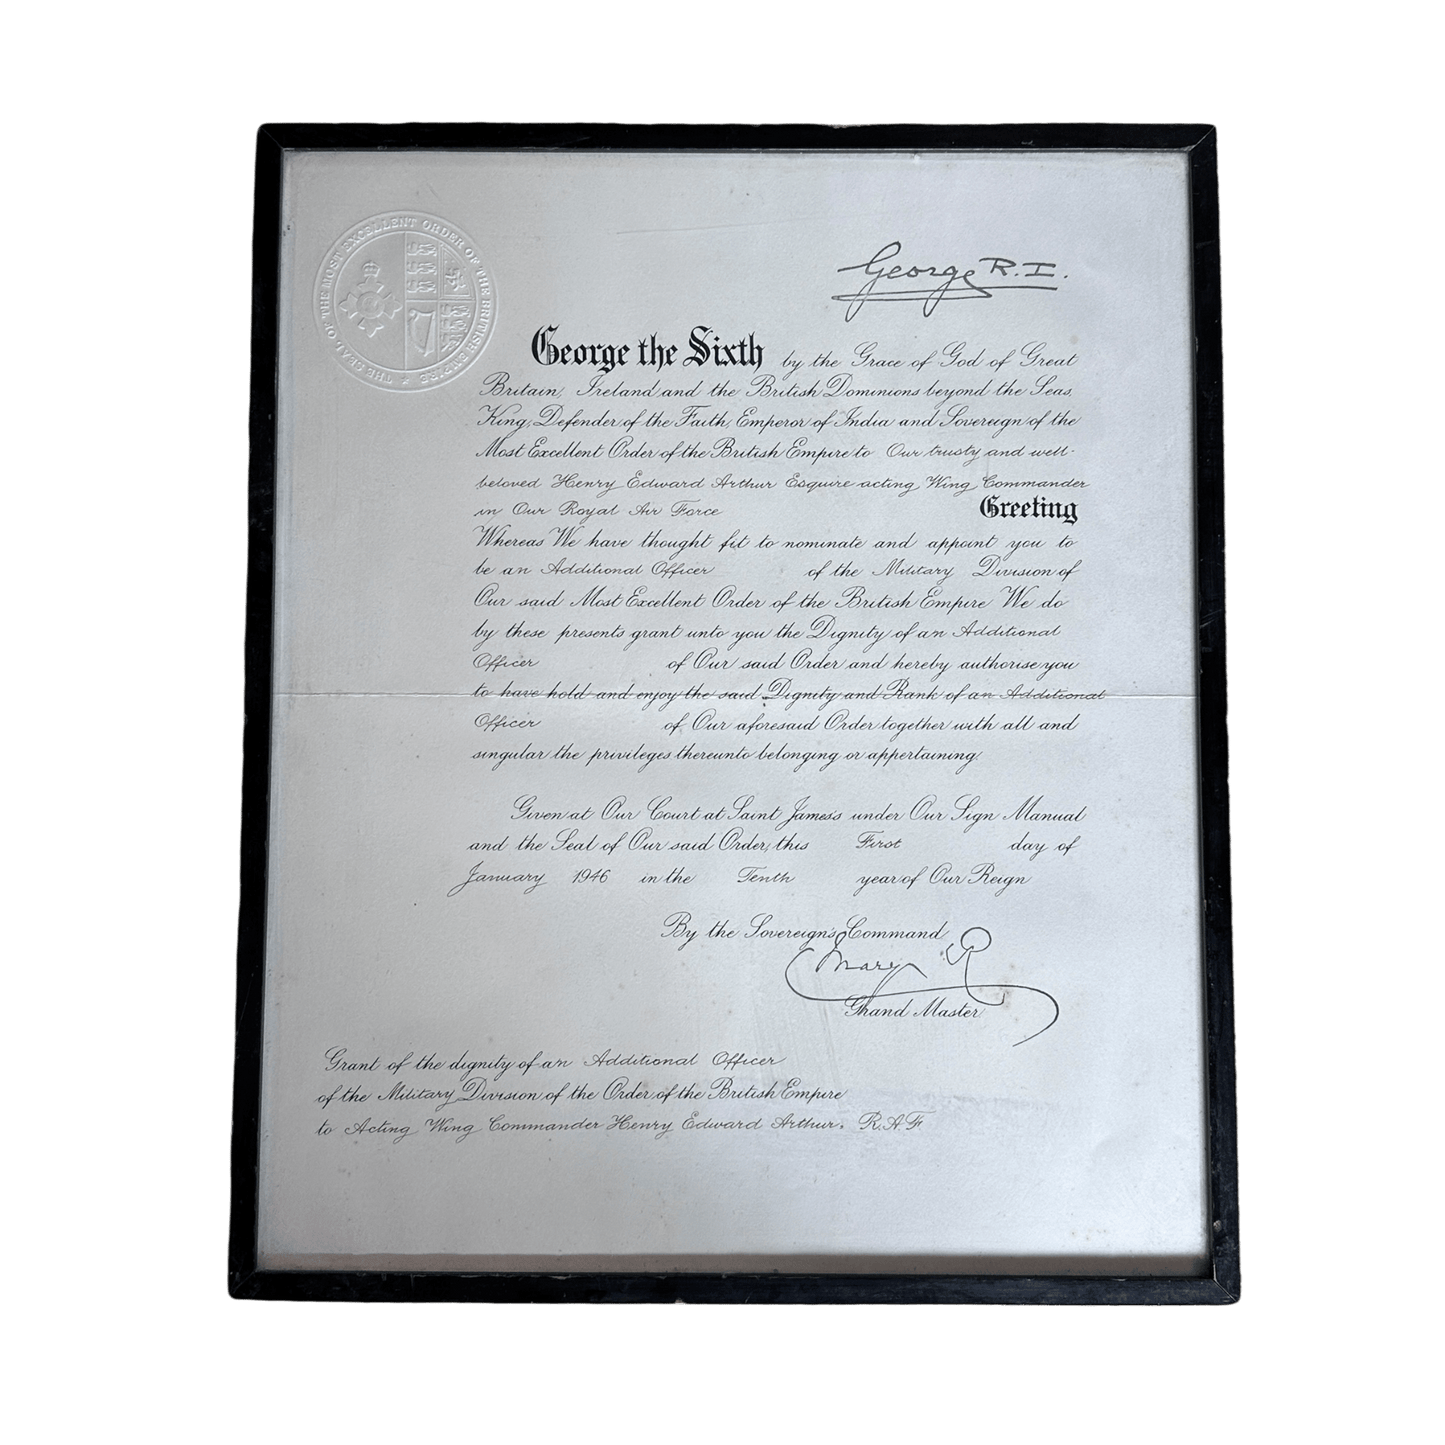 THE SEAL OF THE MOST EXCELLENT ORDER OF THE BRITISH EMPIRE
George R.I.
George the Sixth by the Grace of God of Great
Britain, Ireland and the British Dominions beyond the Seas,
King, Defender of the Faith, Emperor of India and Sovereign of the
Most Excellent Order of the British Empire to Our trusty and well-
beloved Henry Edward Arthur Esquire acting Wing Commander
in Our Royal Air Force Greeting
Whereas We have thought fit to nominate and appoint you to
be an Additional Officer of the Military Division of
Our said Most Excellent Order of the British Empire We do
by these presents grant unto you the Dignity of an Additional
Officer of Our said Order and hereby authorise you
to have hold and enjoy the said Dignity and Rank of an Additional
Officer of Our aforesaid Order together with all and
singular the privileges thereunto belonging or appertaining.
Given at Our Court at Saint James's under Our Sign Manual
and the Seal of Our said Order, this First day of
January 1946 in the Tenth year of Our Reign
By the Sovereign's Command
Mary R
Grand Master
Grant of the dignity of an Additional Officer
of the Military Division of the Order of the British Empire
to Acting Wing Commander Henry Edward Arthur. R.A.F